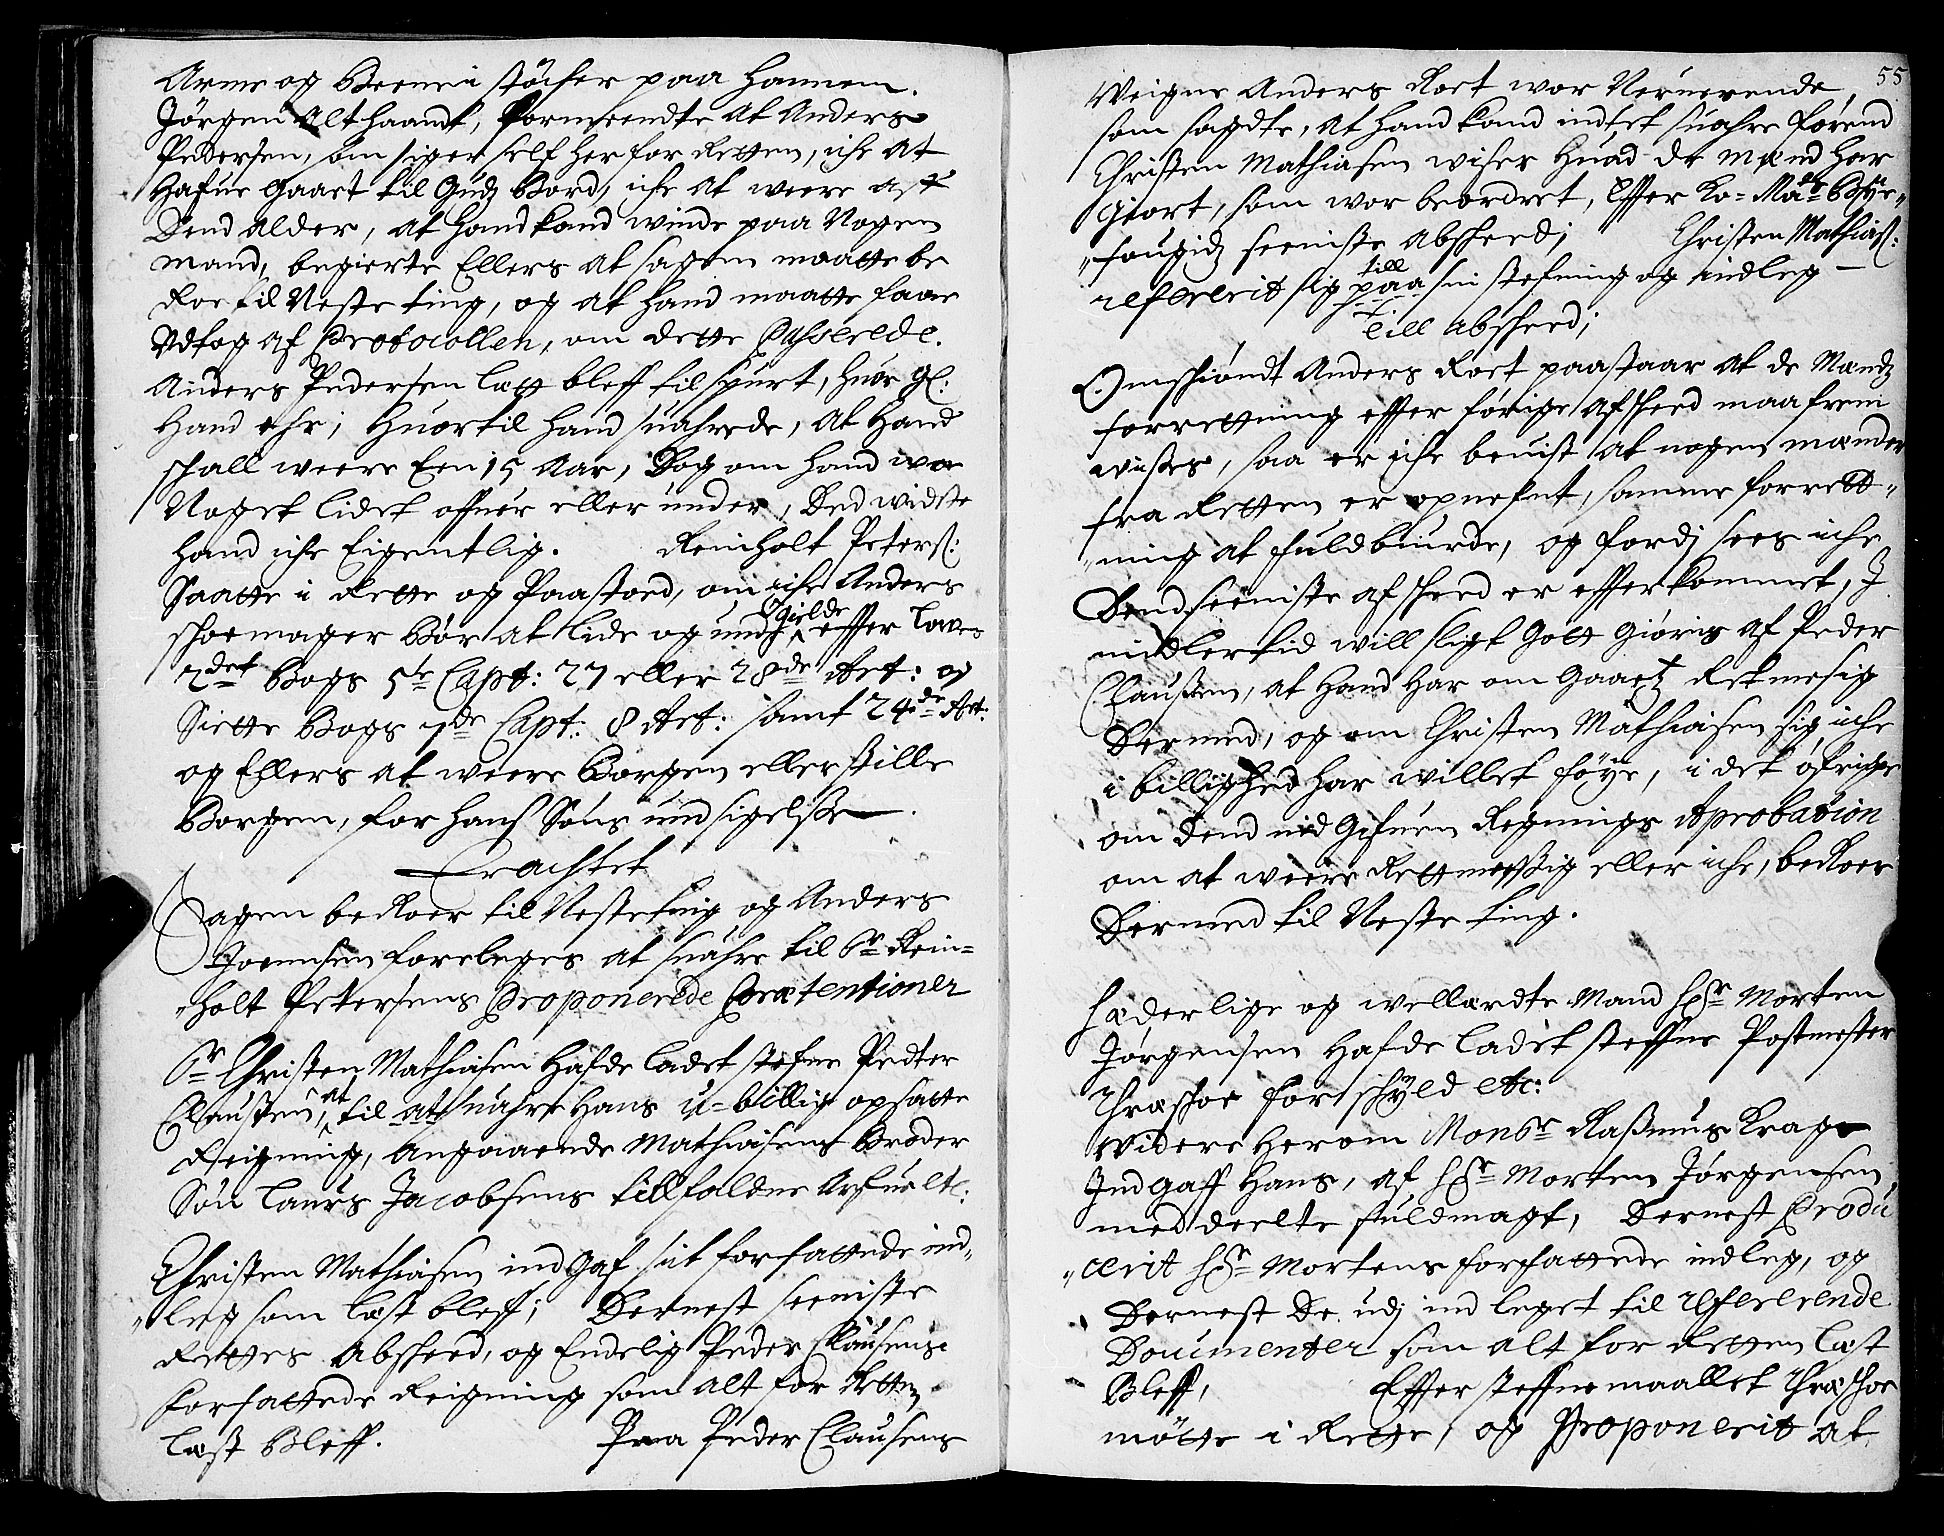 Arme og Beene i støcher paa hannem.
Jörgen Althaandt, formeendte at Anders
Pedersen, som siger self her for Retten, iche at
hafue Gaaet til Gudz Bord, iche at weere af
Dend alder, at hand kand winde paa Nogen
mand, begierte Ellers at sagen maatte be
Roe til Neste ting, og at hand maatte faae
udtog af Protocollen, om dette Passerede.
Anders Pedersen Lætt bleff tilspurt, huor gl:
Hand ehr; huortil hand suahrede, at hand
schall weere Een 15 Aar, Dog om hand war
Noget lidet offuer eller under, Ded widste
hand iche Eigentlig. Reinholt Peters:
Saatte i Rette og Paastoed, om iche Anders
schoemager Bör at lide og undgielde effter Lovens
2det Bogs 5te Capt: 27 eller 28de Art: og
Siette Bogs 7de Capt: 8 Art: samt 24de Art:
og Ellers at weere Borgen eller stille
Borgen, for hans Söns undsigelsse
Erachtet
Sagen beRoer til Nesteting, og Anders
Joensen forelegges at suahre til Sr Rein=
"holt Petersens Proponerede Prætentioner
Sr Christen Mathiasen Hafde ladet stefne Peder
Claussen, at til at suahre Hans u=billig opsatte
Reigning, Angaaende Mathiasens Broder
Sön Laurs Jacobsens tillfaldne Arfue etc:
Christen Mathiasen indGaf sit forfattede ind,
"leg som læst bleff; Dernest seeniste
Rettes Absheed, og Endelig Peder Clausens
forfattede Reigning som alt for Retten
læst Bleff. Paa Peder Clausens
55
Weigne Anders Roet war Nerverende
som sagdte, at hand kand indtet suahre förend
Christen Mathiasen wiser huad de mænd har
giort, som war beordret, Effter Ko= Mats Bye=
"fougidz seeniste Absheed; Christen Mathias:
refererit sig till paa sin stefning og indleg
till Absheed;
Omschiöndt Anders Roet paastaar at de Mændz
forrettning effter förige afsheed maa frem
wises, saa er iche beuist at nogen mænder
fra Retten er opnefnt, samme forrett=
"ning at fuldbiurde, og fordj sees iche
Dend seeniste afsheed er effterkommet, I
midlertid will sligt Gott giöris af Peder
Claussen, at hand har om Gaaetz Retmesig
Dermed, og om Christen Mathiasen sig iche
i billighed har willet föye, i det öfrige
om dend indGifuen Regnings Aprobation
om at weere Rettmessig eller iche, beRoer
Dermed til Neste ting.
Hæderlige og wellærdte Mand Hr Morten
Jørgensen Hafde ladet steffne Postmester
Thraschoe for schyld etc:
Widere herom Monsr Rasmus Krage
Indgaff Hans, af Hr Morten Jørgensen
meddeelte fuldmagt, Dernest Produ
"cerit Hr Mortens forfattede indleg, og
Dernest De udj indleget til refererende
Documenter som alt for Retten læst
Bleff, Effter steffnemaallet Thraschoe
mötte i Rette, og Proponerit at